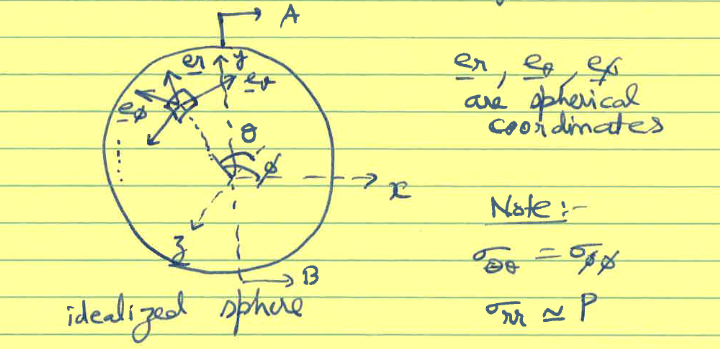 A
e̲r
y
e̲θ
e̲ϕ
θ
ϕ
x
z
B
idealized sphere
e̲r, e̲θ, e̲ϕ
are spherical
coordinates
Note :-
σθθ = σϕϕ
σrr ≃ P